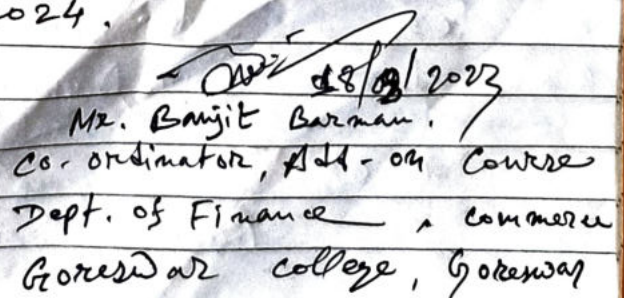 024.
18/09/2023
Mr. Banjit Barman.
Co-ordinator, Add-on Course
Dept. of Finance, Commerce
Goreswar College, Goreswar